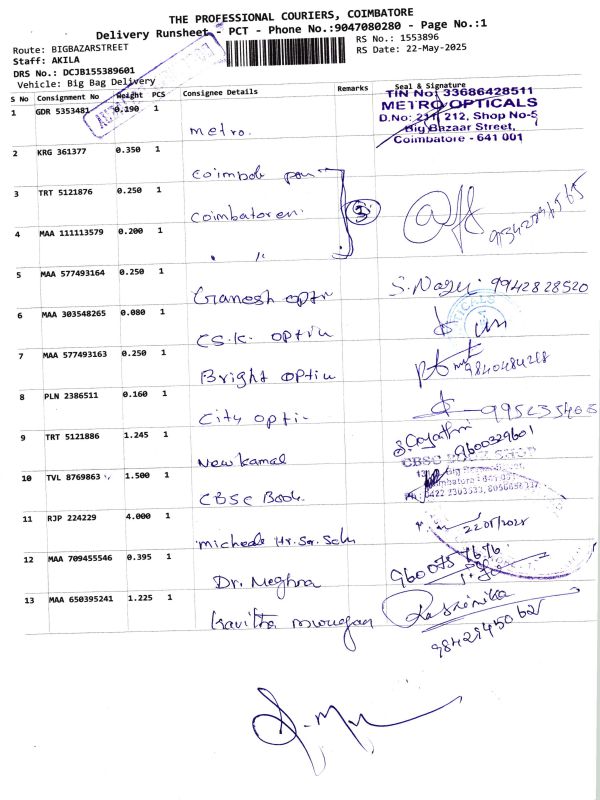 THE PROFESSIONAL COURIERS, COIMBATORE
Delivery Runsheet - PCT - Phone No.:9047080280 - Page No.:1
Route: BIGBAZARSTREET
RS No.: 1553896
Staff: AKILA
RS Date: 22-May-2025
DRS No.: DCJB155389601
Vehicle: Big Bag Delivery
S No Consignment No Weight PCS Consignee Details Remarks Seal & Signature
1 GDR 5353481 0.190 1 metro.
TIN No: 33686428511
METRO OPTICALS
D.No: 211, 212, Shop No-5
Big Bazaar Street,
Coimbatore - 641 001
2 KRG 361377 0.350 1 Coimbole pen
3 TRT 5121876 0.250 1 Coimbatore en
4 MAA 111113579 0.200 1 " "
3
5 MAA 577493164 0.250 1 Ganesh opti S. Nagu 9942828520
6 MAA 303548265 0.080 1 C.S.K. opticu
7 MAA 577493163 0.250 1 Bright opticu 9840484218
8 PLN 2386511 0.160 1 City opti 995235468
9 TRT 5121886 1.245 1 New Kamal S. Gayathri 9600329601
10 TVL 8769863 1.500 1 CBSC Book.
CBSC BOOK SHOP
Big Bazaar Street,
Coimbatore - 641 001
Ph: 0422 2303533,
11 RJP 224229 4.000 1 micheals Hr. Sec. Sch 22/05/2025
12 MAA 709455546 0.395 1 Dr. Meghna 960075 7676
13 MAA 650395241 1.225 1 Kavitha murugan